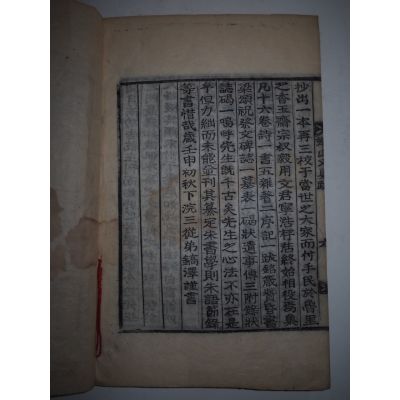 抄出一本再三校于當世之大家而付手民於魯里
之杏玉齋宗叔毅用文君寧浩秤慈終始相役焉集
凡十六卷詩一書五雜著一序記一跋銘箴贊昏書
梁頌祝祭文碑誌一墓表一碣狀遺事傳三附錄狀
誌碣一嗚呼先生旣千古矣先生之心法不亦在是
乎但力絀而未能並刊其纂定朱書學則朱語節錄
等書惜哉歲壬申初秋下浣三從弟鎬澤謹書